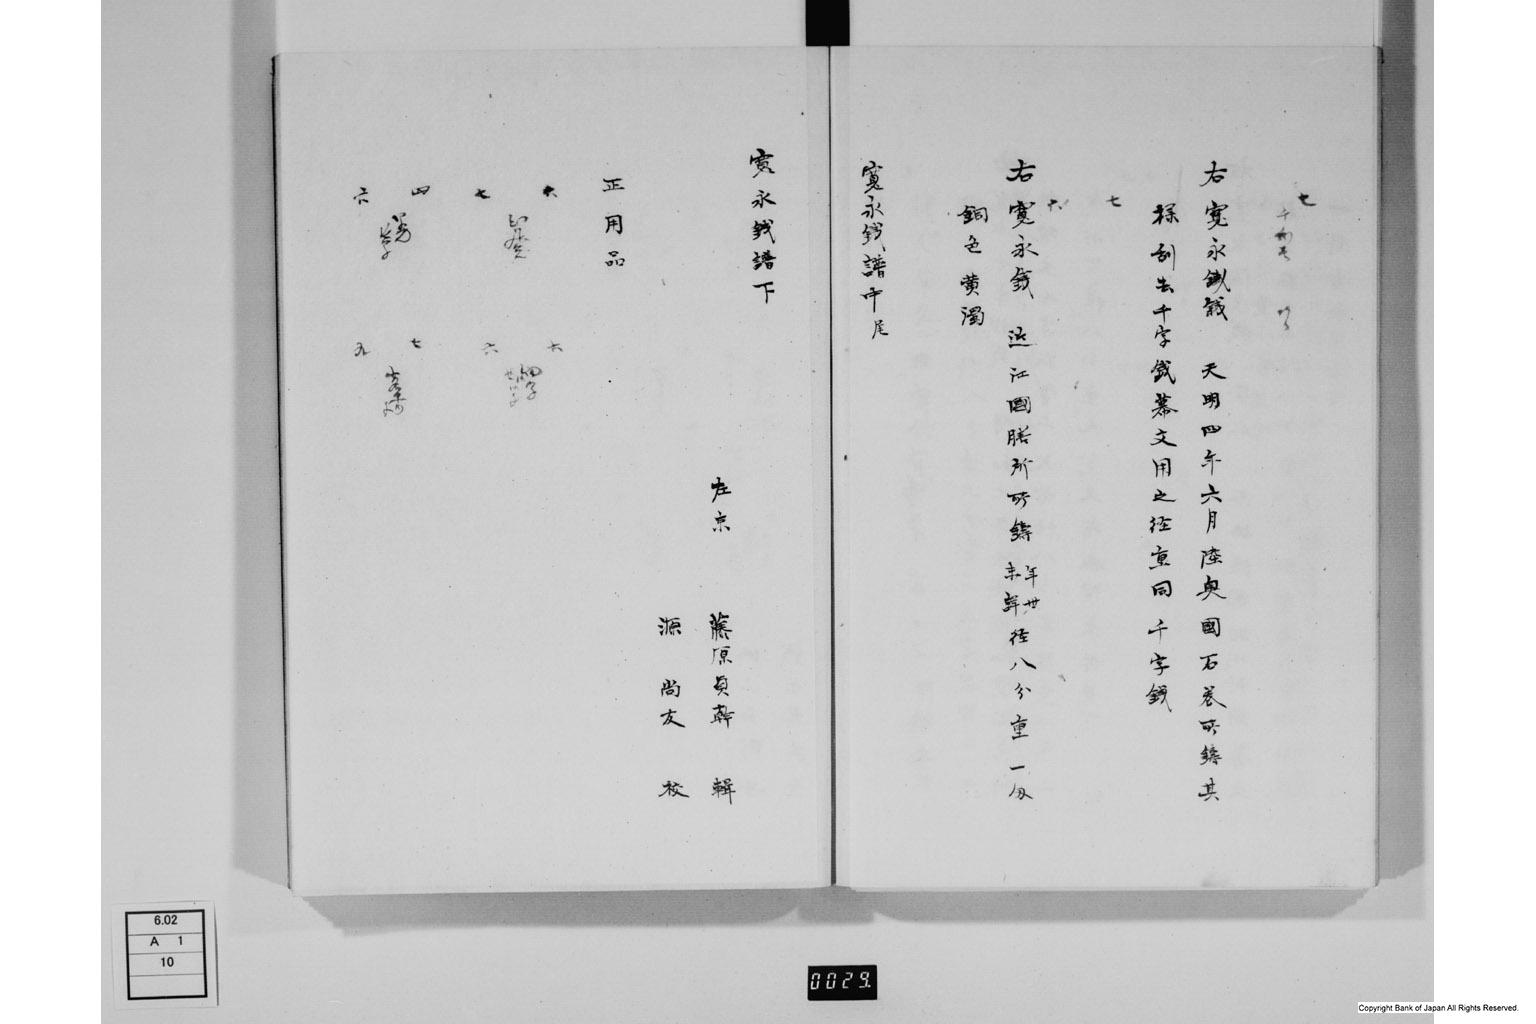 七
右寛永鐵錢　天明四年六月陸奥國石巻所鋳其
様刮去千字錢幕文用之径重同千字錢
七
六
右寛永錢　近江國膳所所鋳 年世未詳 径八分重一匁
銅色黄濁
寛永錢譜中尾
寛永錢譜下
左京　藤原貞幹　輯
源　尚友　校
正用品
六
七
四
六
六
細字
六
七
九
6.02
A 1
10
0029.
Copyright Bank of Japan All Rights Reserved.